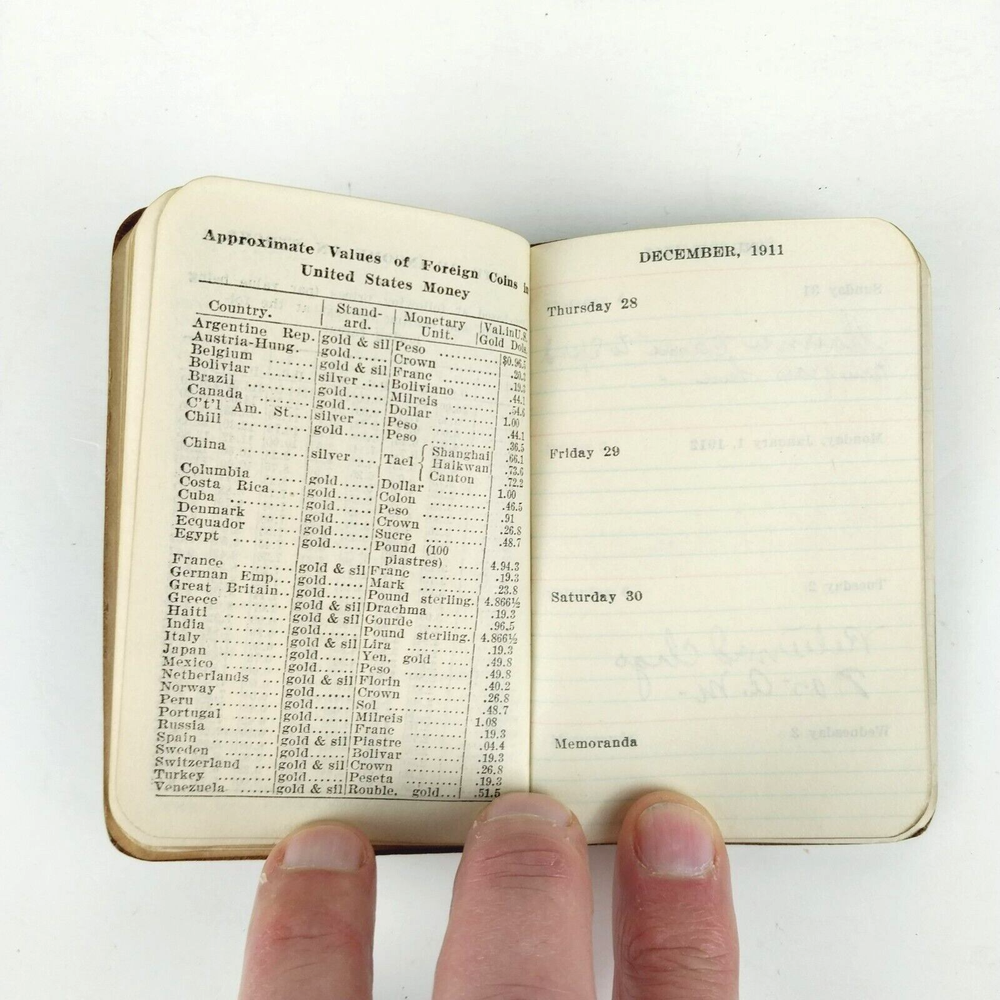 Approximate Values of Foreign Coins in
United States Money
Country. Stand-ard. Monetary Unit. Val.inU.S. Gold Dols.
Argentine Rep. gold & sil Peso .......... $0.96.5
Austria-Hung. gold...... Crown .......... .20.3
Belgium ...... gold & sil Franc .......... .19.3
Boliviar ........ silver .... Boliviano ...... .44.1
Brazil ......... gold...... Milreis ........ .54.6
Canada ....... gold...... Dollar ......... 1.00
C't'l Am. St... silver .... Peso .......... .44.1
Chili .......... gold...... Peso .......... .36.5
China ......... silver .... Tael { Shanghai .66.1
Haikwan .73.6
Canton .72.2
Columbia ...... gold...... Dollar ......... 1.00
Costa Rica..... gold...... Colon .......... .46.5
Cuba .......... gold...... Peso .......... .91
Denmark ...... gold...... Crown ......... .26.8
Ecquador ...... gold...... Sucre .......... .48.7
Egypt ......... gold...... Pound (100
piastres) .... 4.94.3
France ........ gold & sil Franc .......... .19.3
German Emp... gold...... Mark .......... .23.8
Great Britain.. gold...... Pound sterling. 4.866½
Greece ........ gold & sil Drachma ....... .19.3
Haiti .......... gold & sil Gourde ........ .96.5
India .......... gold...... Pound sterling. 4.866½
Italy .......... gold & sil Lira ........... .19.3
Japan ......... gold...... Yen, gold ...... .49.8
Mexico ........ gold...... Peso .......... .49.8
Netherlands ... gold & sil Florin ......... .40.2
Norway ........ gold...... Crown ......... .26.8
Peru .......... gold...... Sol ............ .48.7
Portugal ....... gold...... Milreis ........ 1.08
Russia ........ gold...... Franc .......... .19.3
Spain ......... gold & sil Piastre ........ .04.4
Sweden ........ gold...... Bolivar ........ .19.3
Switzerland ... gold & sil Crown ......... .26.8
Turkey ........ gold...... Peseta ......... .19.3
Venezuela ..... gold & sil Rouble, gold... .51.5
DECEMBER, 1911
Thursday 28
Friday 29
Saturday 30
Memoranda